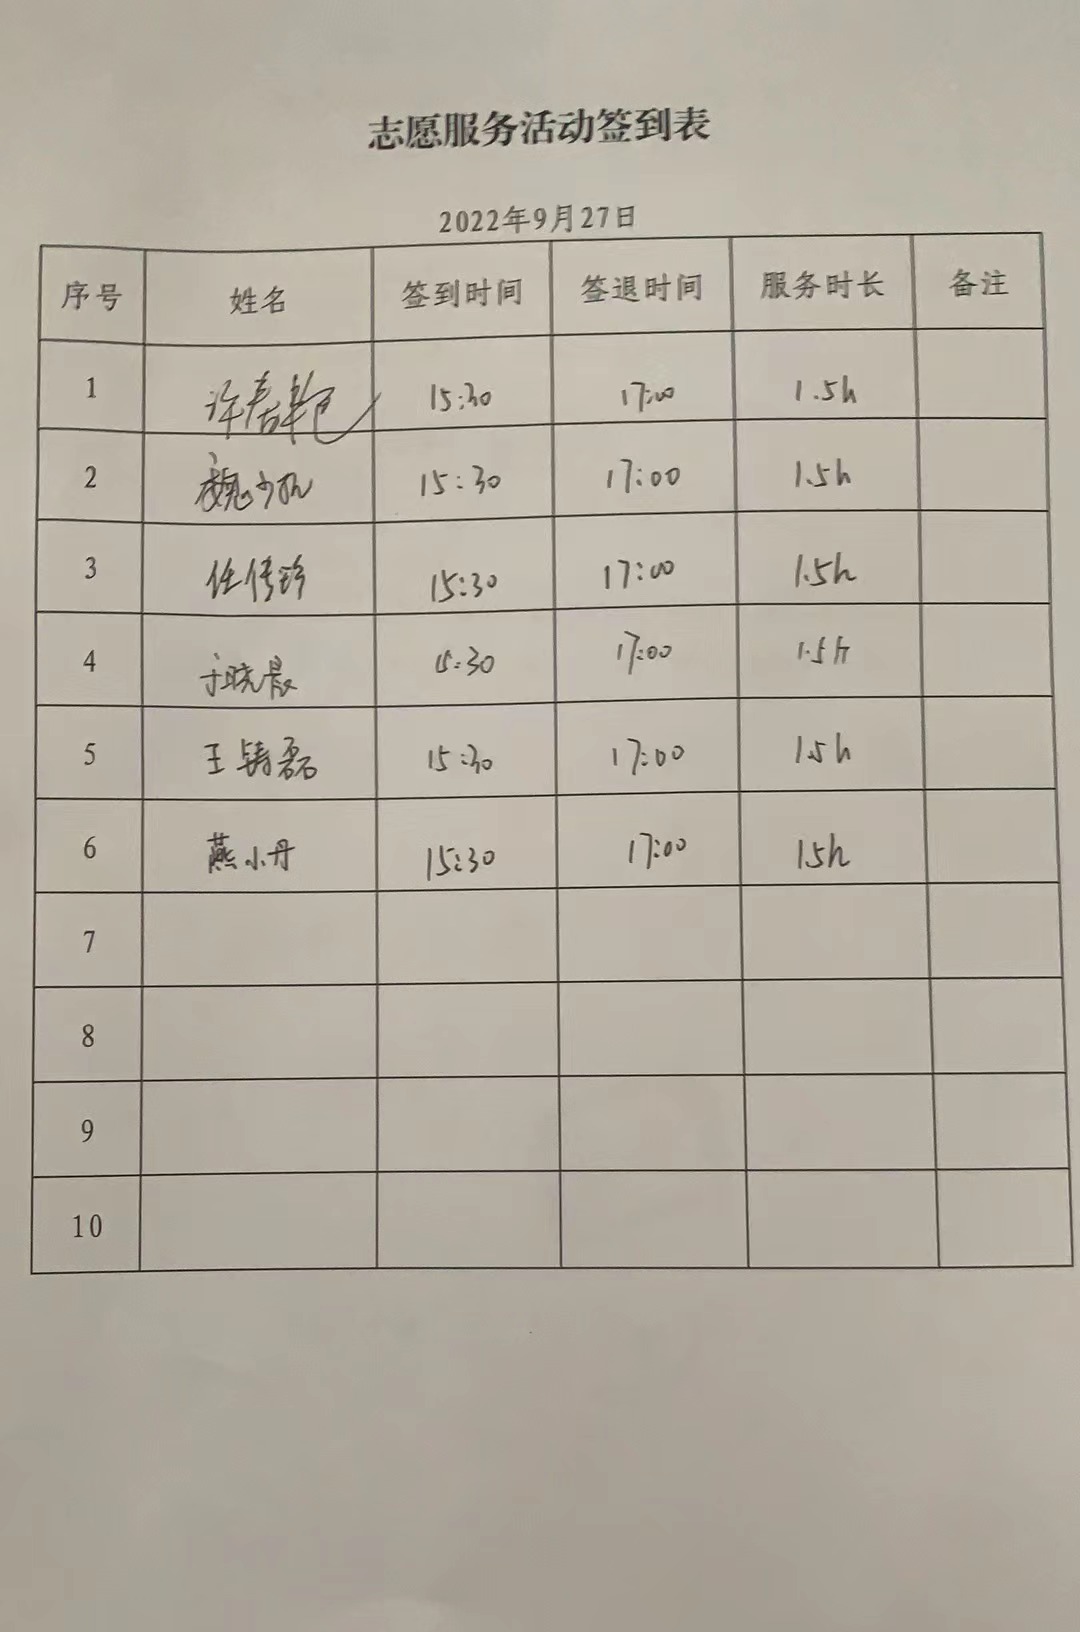 志愿服务活动签到表
2022年9月27日
序号 姓名 签到时间 签退时间 服务时长 备注
1 许 15:30 17:00 1.5h
2 魏少 15:30 17:00 1.5h
3 任倩 15:30 17:00 1.5h
4 于晓晨 15:30 17:00 1.5h
5 王铸磊 15:30 17:00 1.5h
6 燕小丹 15:30 17:00 1.5h
7
8
9
10